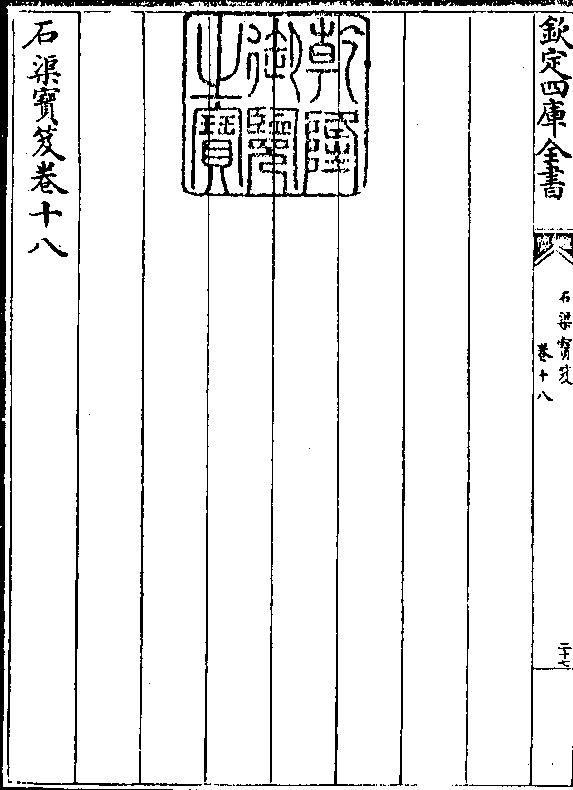 欽定四庫全書
石渠寶笈
卷十八
二十七
乾隆御覽之寶
石渠寶笈卷十八